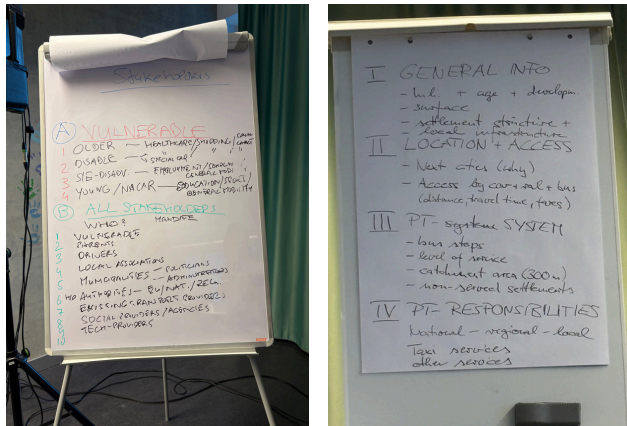 Stakeholders
A VULNERABLE
1 OLDER — HEALTHCARE/SHOPPING/
2 DISABLE — " SPECIAL CAR/ " "
3 S/E-DISADV. — EMPLOYMENT/ GENERAL MOBI
4 YOUNG/NOCAR — EDUCATION/ GENERAL MOBILITY
B ALL STAKEHOLDERS
WHO? MANDATE
1 VULNERABLE
2 PARENTS
3 DRIVERS
4 LOCAL ASSOCIATIONS
5 MUNICIPALITIES — POLITICIANS
— ADMINISTRATORS
6 AUTHORITIES — EU/NAT./REG.
7 EXISTING TRANSPORT PROVIDERS
8 SOCIAL PROVIDERS/AGENCIES
9 TECH-PROVIDERS
10
I GENERAL INFO
- inh. + age + developm.
- surface
- settlement structure +
- local infrastructure
II LOCATION + ACCESS
- Next cities (why)
- Access by car + rail + bus
(distance, travel time, fares)
III PT-system SYSTEM
- bus stops
- level of service
- catchment area (300m)
- non-served settlements
IV PT-RESPONSIBILITIES
National - regional - local
Taxi services
other services